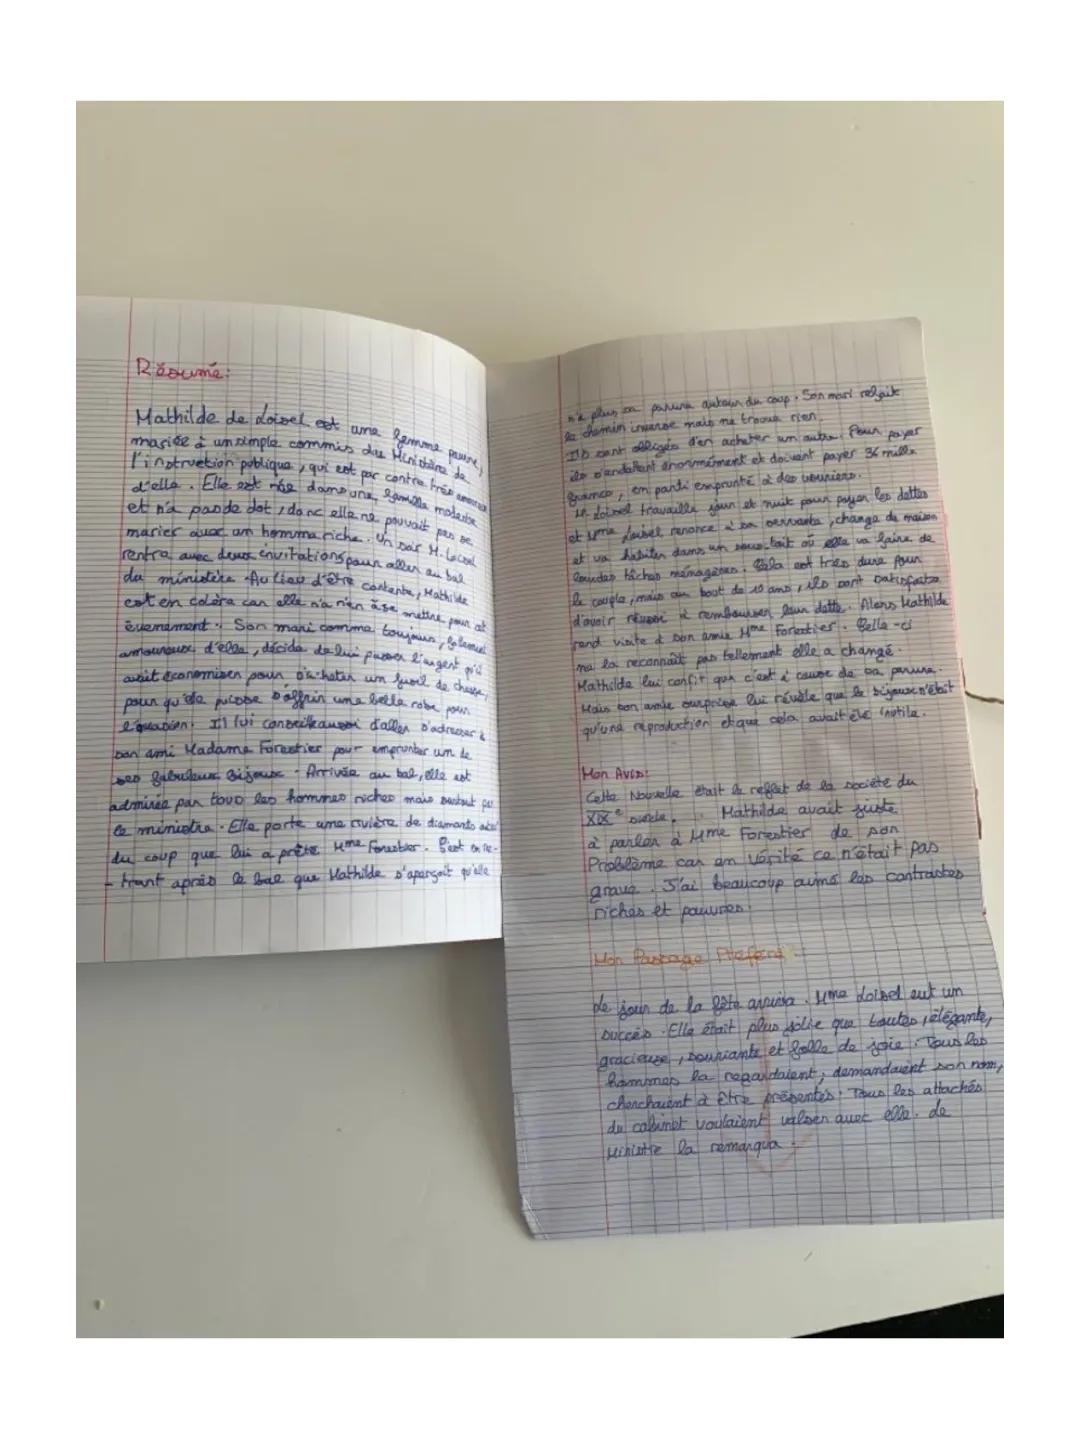 Résumé:
Mathilde de Loisel est une femme pauvre,
mariée à un simple commis du Ministère de
l'instruction publique, qui est par contre très amoureux
d'elle. Elle est née dans une famille modeste
et n'a pas de dot, donc elle ne pouvait pas se
marier avec un homme riche. Un soir M. Loisel
rentra avec deux invitations pour aller au bal
du ministère. Au lieu d'être contente, Mathilde
est en colère car elle n'a rien à se mettre pour cet
évenement. Son mari comme toujours, follement
amoureux d'elle, décida de lui passer l'argent qu'il
avait économiser pour s'acheter un fusil de chasse,
pour qu'elle puisse s'offrir une belle robe pour
l'ocassion. Il lui conseille aussi d'aller s'adresser à
son ami Madame Forestier pour emprunter un de
ses fabuleux bijoux. Arrivée au bal, elle est
admirée par tous les hommes riches mais surtout par
le ministre. Elle porte une rivière de diamants autour
du coup que lui a prêté Mme Forestier. C'est en ren-
-trant après le bal que Mathilde s'aperçoit qu'elle
n'a plus sa parure autour du coup. Son mari refait
le chemin inverse mais ne trouve rien.
Ils sont obligés d'en acheter un autre. Pour payer
ils s'endettent énormément et doivent payer 36 mille
francs, en parti emprunté à des usuriers.
M. Loisel travaille jour et nuit pour payer les dettes
et Mme Loisel renonce à sa servante, change de maison
et va habiter dans un sous-toit où elle va faire de
lourdes tâches ménagères. Cela est très dure pour
le couple, mais au bout de 10 ans, ils sont satisfaits
d'avoir réussi à rembourser leur dette. Alors Mathilde
rend visite à son amie Mme Forestier. Celle-ci
ne la reconnaît pas tellement elle a changé.
Mathilde lui confit que c'est à cause de sa parure.
Mais son amie surprise lui révèle que le bijoux n'était
qu'une reproduction et que cela avait été inutile.
Mon Avis:
Cette Nouvelle était le reflet de la société du
XIXe siècle. Mathilde avait juste
à parler à Mme Forestier de son
Problème car en vérité ce n'était pas
grave. J'ai beaucoup aimé les contrastes
riches et pauvres.
Mon Passage Préféré:
Le jour de la fête arriva. Mme Loisel eut un
succès. Elle était plus jolie que toutes, élégante,
gracieuse, souriante et folle de joie. Tous les
hommes la regardaient, demandaient son nom,
cherchaient à être présentés. Tous les attachés
du cabinet voulaient valser avec elle. Le
Ministre la remarqua.